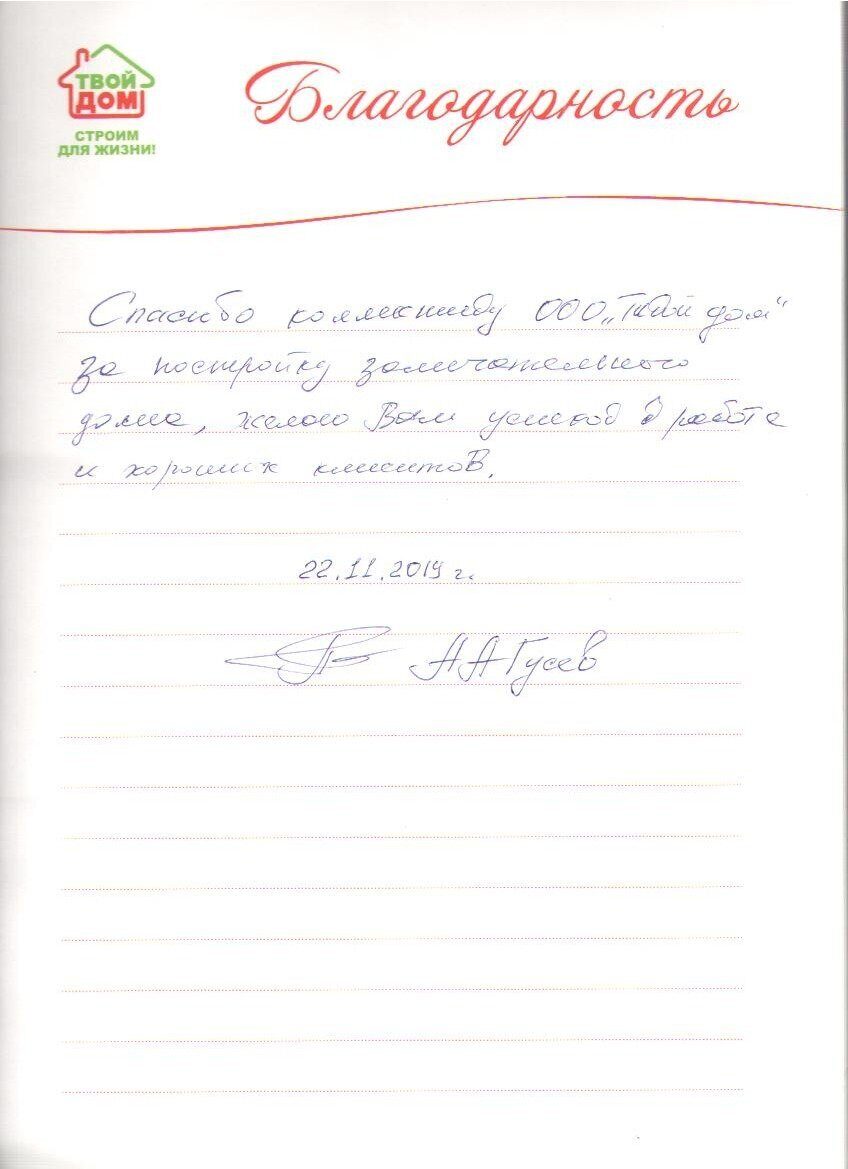 ТВОЙ
ДОМ
СТРОИМ
ДЛЯ ЖИЗНИ!
Благодарность
Спасибо коллективу ООО „Твой дом“
за постройку замечательного
дома, желаю Вам успехов в работе
и хороших клиентов.
22.11.2019 г.
А А Гусев